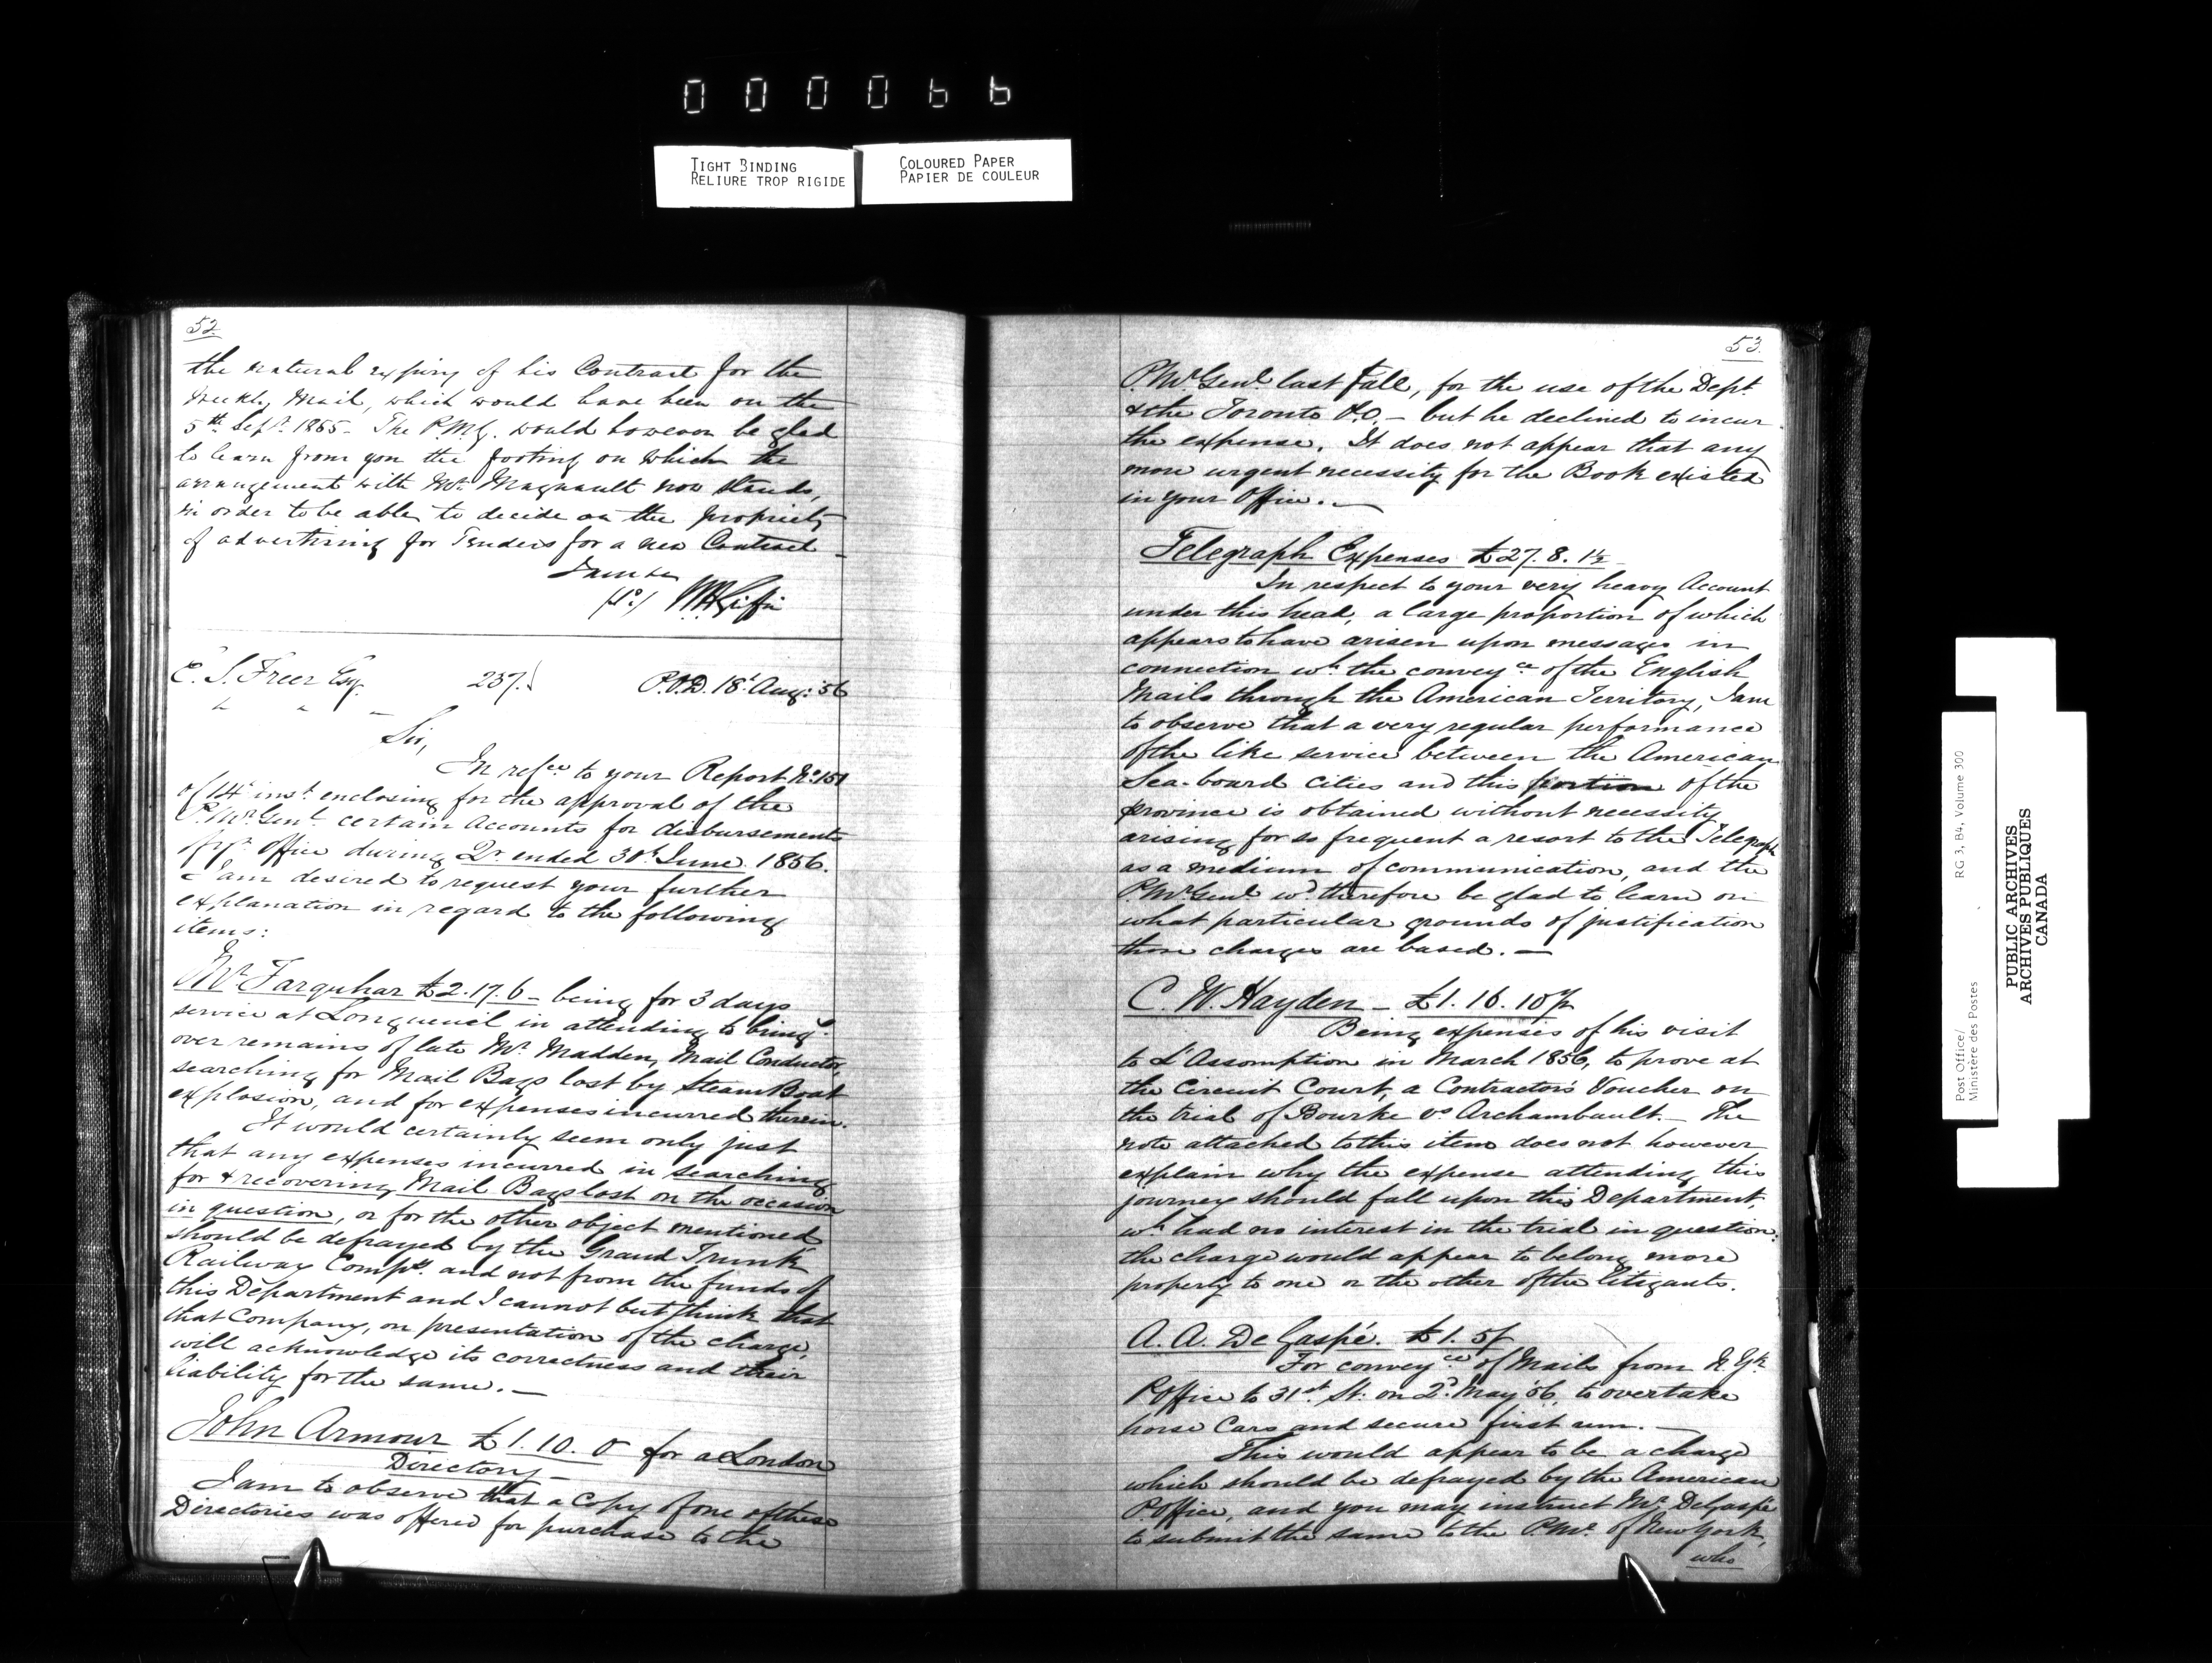 000066
TIGHT BINDING
RELIURE TROP RIGIDE
COLOURED PAPER
PAPIER DE COULEUR
52
the natural expiry of his Contract for the
Weekly Mail, which would have been on the
5th Sept. 1855 - The P.M.G. would however be glad
to learn from you the footing on which the
arrangement with Mr. Magnault now stands,
in order to be able to decide on the propriety
of advertising for Tenders for a new Contract -
I am &c
WHGriffin
E. S. Freer Esq. 237. P.O.D. 18t Aug: 56
Sir,
In refce to your Report No. 151
of 14t inst. enclosing for the approval of the
P.Mr. Genl. certain Accounts for disbursements
of yr. Office during Qr. ended 30t June 1856.
I am desired to request your further
explanation in regard to the following
items:
Mr. Farquhar £2.17.6 - being for 3 days
service at Longueuil in attending to bring
over remains of late Mr. Madden, Mail Conductor,
searching for Mail Bags lost by Steam Boat
explosion, and for expenses incurred therein.
It would certainly seem only just
that any expenses incurred in searching
for & recovering Mail Bags lost on the occasion
in question, or for the other object mentioned
should be defrayed by the Grand Trunk
Railway Compy. and not from the funds of
this Department and I cannot but think that
that Company, on presentation of the charge,
will acknowledge its correctness and their
liability for the same. -
John Armour £1.10.0 for a London
Directory -
I am to observe that a Copy of one of these
Directories was offered for purchase to the
53.
P.Mr. Genl. last fall, for the use of the Dept.
& the Toronto P.O. - but he declined to incur
the expense. It does not appear that any
more urgent necessity for the Book existed
in your Office. -
Telegraph Expenses £27.8.1½
In respect to your very heavy Account
under this head, a large proportion of which
appears to have arisen upon messages in
connection wh. the conveyce of the English
Mails through the American Territory, I am
to observe that a very regular performance
of the like service between the American
Sea-board Cities and this portion of the
province is obtained without necessity
arising for so frequent a resort to the Telegraph
as a medium of communication, and the
P.Mr. Genl. wd. therefore be glad to learn on
what particular grounds of justification
these charges are based. -
C. W. Hayden - £1.16.10
Being expenses of his visit
to L'Assomption in March 1856, to prove at
the Circuit Court, a Contractor's Voucher on
the trial of Bourke vs Archambault. - The
note attached to this item does not however
explain why the expense attending this
journey should fall upon this Department,
wh. had no interest in the trial in question:
the charge would appear to belong more
properly to one or the other of the litigants.
A. A. DeGaspé. £1.5/
For conveyce of Mails from N. Yk.
P.Office to 31st St. on 2d May '56, to overtake
horse Cars and secure first run. -
This would appear to be a charge
which should be defrayed by the American
P.Office, and you may instruct Mr. DeGaspé
to submit the same to the P.Mr. of New York,
who
Post Office/
Ministère des Postes
RG 3, B4, Volume 300
PUBLIC ARCHIVES
ARCHIVES PUBLIQUES
CANADA